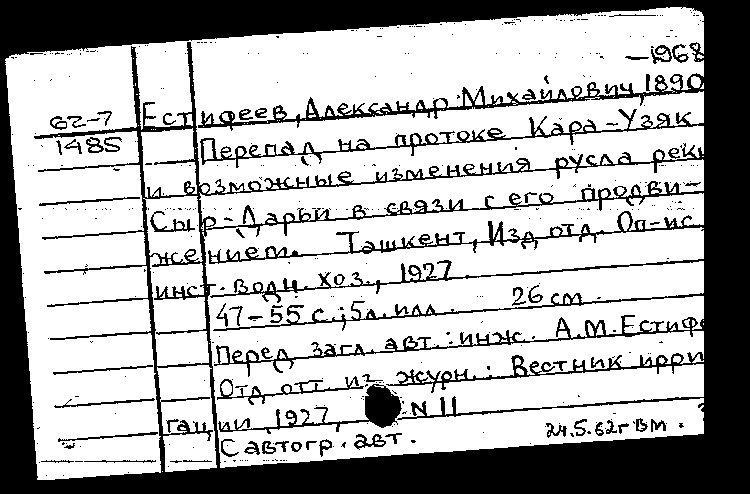 —1968
62-7 Естифеев, Александр Михайлович, 1890
1485 Перепад на протоке Кара-Узяк
и возможные изменения русла реки
Сыр-Дарьи в связи с его продви-
жением. Ташкент, Изд. отд. Оп-ис.
инст. водн. хоз., 1927.
47-55 с.; 5л. илл. 26 см.
Перед загл. авт.: инж. А.М. Естифе
Отд. отт. из журн.: Вестник ирри
гации, 1927, N 11
С автогр. авт. 24.5.62г ВМ.